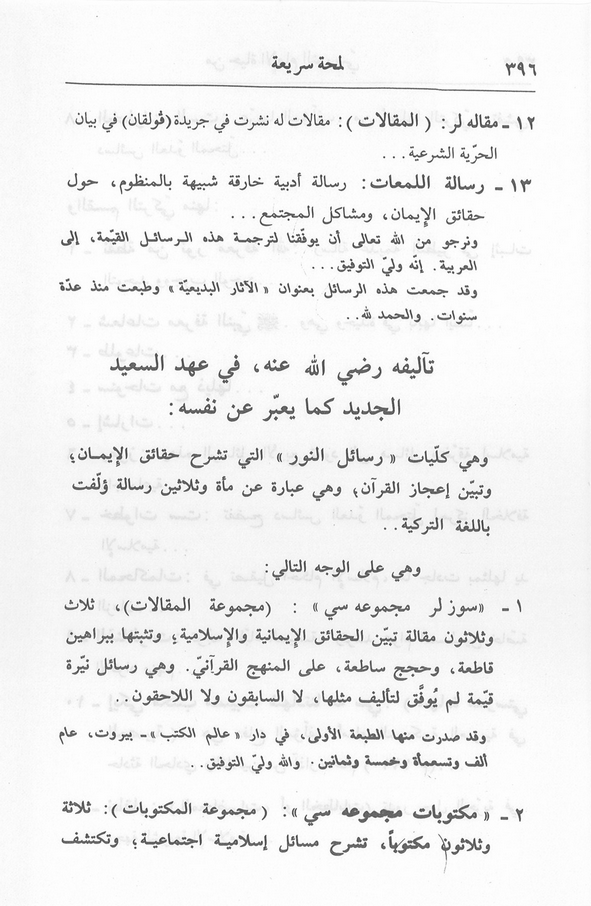 ٣٩٦ لمحة سريعة
١٢ ـ مقاله لر: ( المقالات ): مقالات له نشرت في جريدة (ڤولقان) في بيان
الحرّية الشرعية...
١٣ ـ رسالة اللمعات: رسالة أدبية خارقة شبيهة بالمنظوم، حول
حقائق الإيمان، ومشاكل المجتمع...
ونرجو من الله تعالى أن يوفّقنا لترجمة هذه الرسائل القيّمة، إلى
العربية. إنّه وليّ التوفيق...
وقد جمعت هذه الرسائل بعنوان «الآثار البديعيّة» وطبعت منذ عدّة
سنوات. والحمد لله..
تآليفه رضي الله عنه، في عهد السعيد
الجديد كما يعبّر عن نفسه:
وهي كلّيات « رسائل النور » التي تشرح حقائق الإيمان؛
وتبيّن إعجاز القرآن؛ وهي عبارة عن مأة وثلاثين رسالة ؤلّفت
باللغة التركية..
وهي على الوجه التالي:
١ ـ «سوز لر مجموعه سي» : (مجموعة المقالات)، ثلاث
وثلاثون مقالة تبيّن الحقائق الإيمانية والإسلامية؛ وتثبتها ببراهين
قاطعة، وحجج ساطعة، على المنهج القرآنيّ. وهي رسائل نيّرة
قيّمة لم يُوفَّق لتأليف مثلها، لا السابقون ولا اللاحقون..
وقد صدرت منها الطبعة الأولى، في دار «عالم الكتب» ـ بيروت، عام
ألف وتسعمأة وخمسة وثمانين. والله وليّ التوفيق..
٢ ـ « مكتوبات مجموعه سي »: ( مجموعة المكتوبات ): ثلاثة
وثلاثون مكتوباً، تشرح مسائل إسلامية اجتماعية؛ وتكتشف